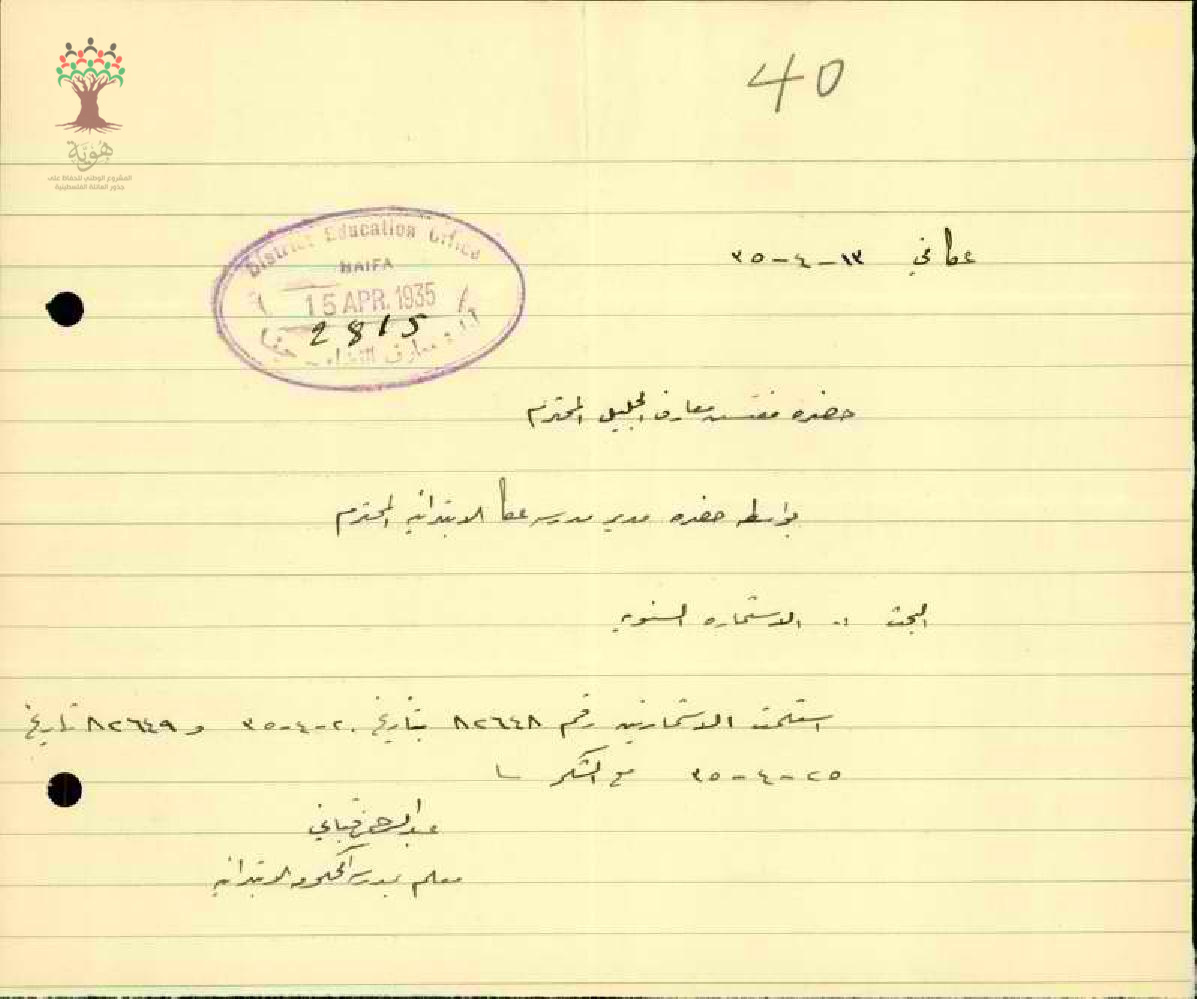 40
هوية
المشروع الوطني للحفاظ على
جذور العائلة الفلسطينية
عكا في ١٣-٤-٣٥
District Education Office
HAIFA
15 APR. 1935
2815
معارف اللواء حيفا
حضرة مفتش معارف الجليل المحترم
بواسطة حضرة مدير مدرسة عكا الابتدائية المحترم
البحث :. الاستمارة السنوية
استلمت الاستمارتين رقم ٨٢٦٤٨ بتاريخ ٢٠-٤-٣٥ و ٨٢٦٤٩ تاريخ
٢٥-٤-٣٥ مع الشكر
عبد الرحمن قباني
معلم بمدرسة الابتدائية